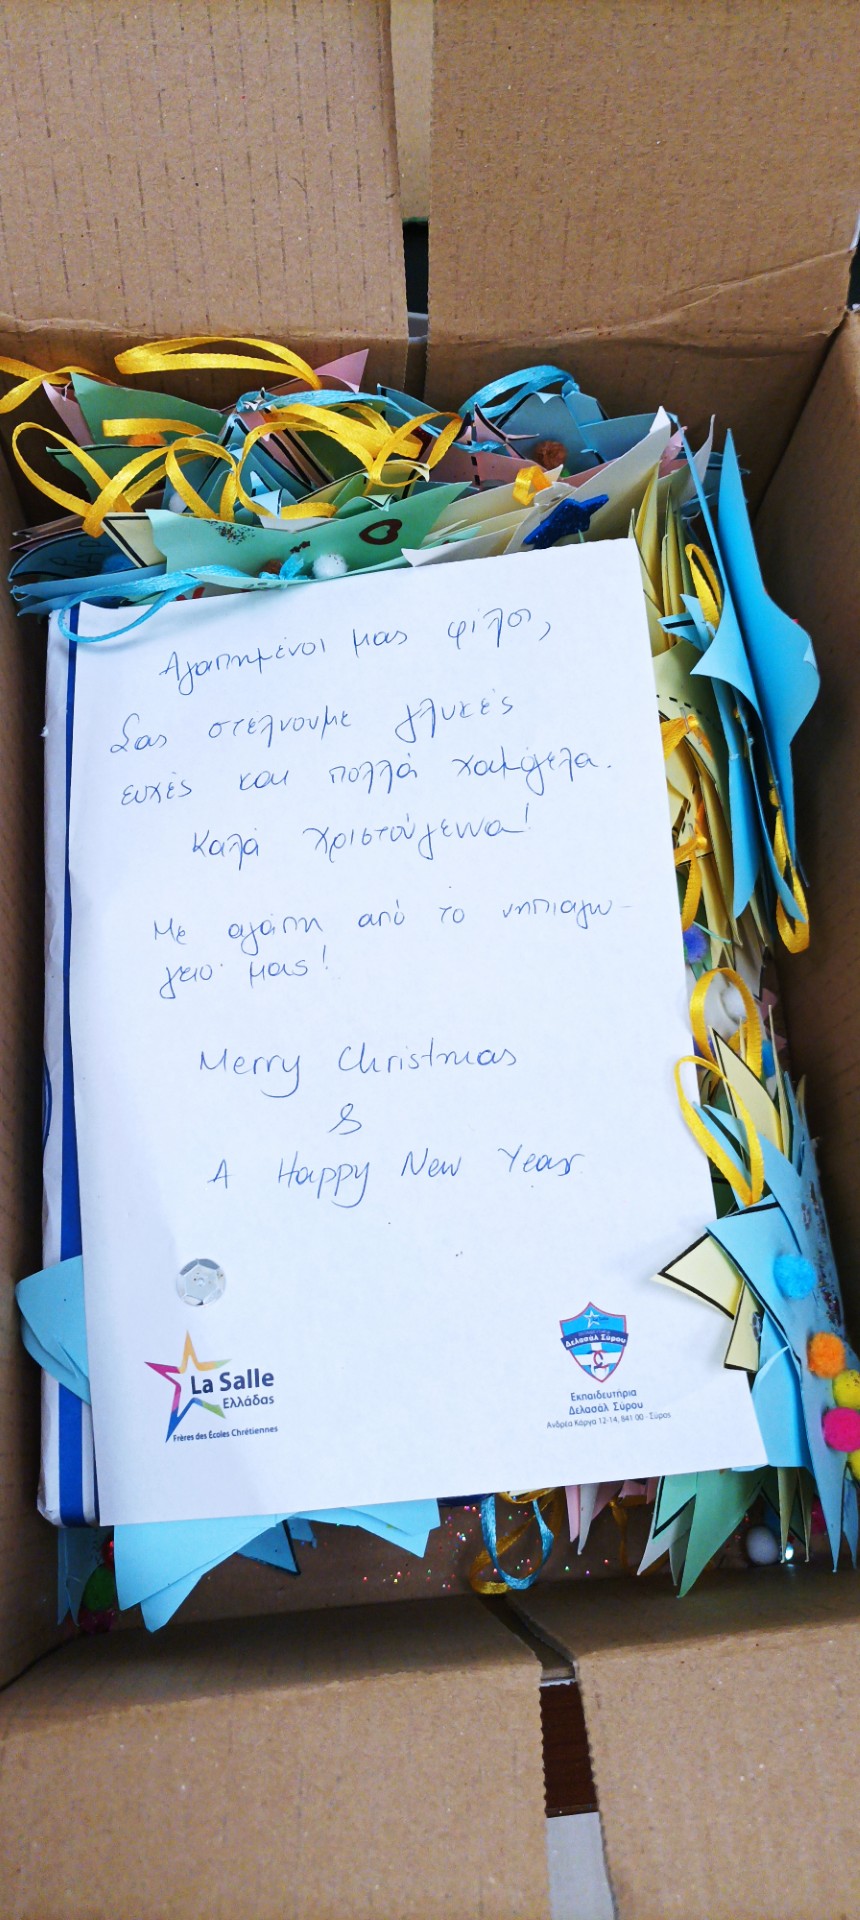 Αγαπημένοι μας φίλοι,
Σας στέλνουμε γλυκές
ευχές και πολλά χαμόγελα.
Καλά Χριστούγεννα!
Με αγάπη από το νηπιαγω-
γειο μας!
Merry Christmas
&
A Happy New Year
La Salle
Ελλάδας
Frères des Écoles Chrétiennes
Δελασάλ Σύρου
Εκπαιδευτήρια
Δελασάλ Σύρου
Ανδρέα Κάργα 12-14, 841 00 - Σύρος